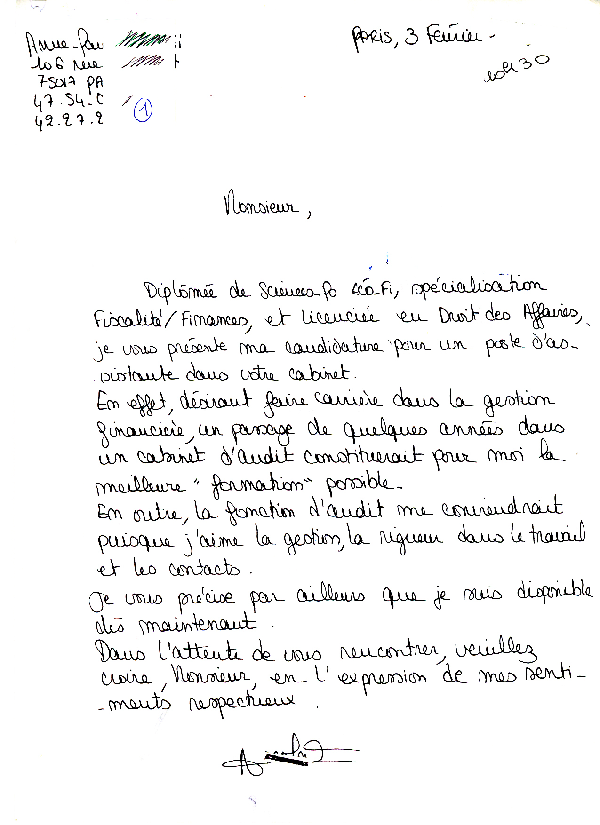 PARIS, 3 Février -
106 rue
75017 PA
47.54.C
42.27.2
1
Monsieur,
Diplômée de Sciences-Po éco-Fi, spécialisation
Fiscalité/Finances, et licenciée en Droit des Affaires,
je vous présente ma candidature pour un poste d'as-
-sistante dans votre cabinet.
En effet, désirant faire carrière dans la gestion
financière, un passage de quelques années dans
un cabinet d'audit constituerait pour moi la
meilleure "formation" possible.
En outre, la fonction d'audit me conviendrait
puisque j'aime la gestion, la rigueur dans le travail
et les contacts.
Je vous précise par ailleurs que je suis disponible
dès maintenant.
Dans l'attente de vous rencontrer, veuillez
croire, Monsieur, en l'expression de mes senti-
-ments respectueux.